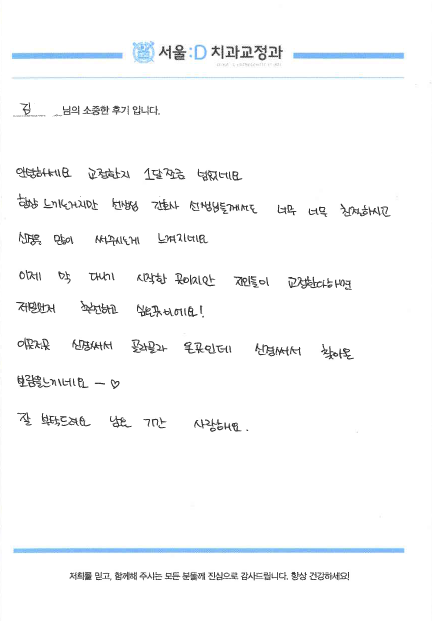 서울:D 치과교정과
김 님의 소중한 후기 입니다.
안녕하세요 교정한지 1달조금 넘었네요
항상 느끼는거지만 선생님 간호사 선생님들께서도 너무 너무 친절하시고
신경을 많이 써주시는게 느껴지네요
이제 막 다니기 시작한 곳이지만 지인들이 교정한다하면
제일먼저 추천하고 싶은곳이에요!
이곳저곳 신경써서 골라골라 온곳인데 신경써서 찾아온
보람을느끼네요 ー ♡
잘 부탁드려요 남은 기간 사랑해요.
저희를 믿고, 함께해 주시는 모든 분들께 진심으로 감사드립니다. 항상 건강하세요!